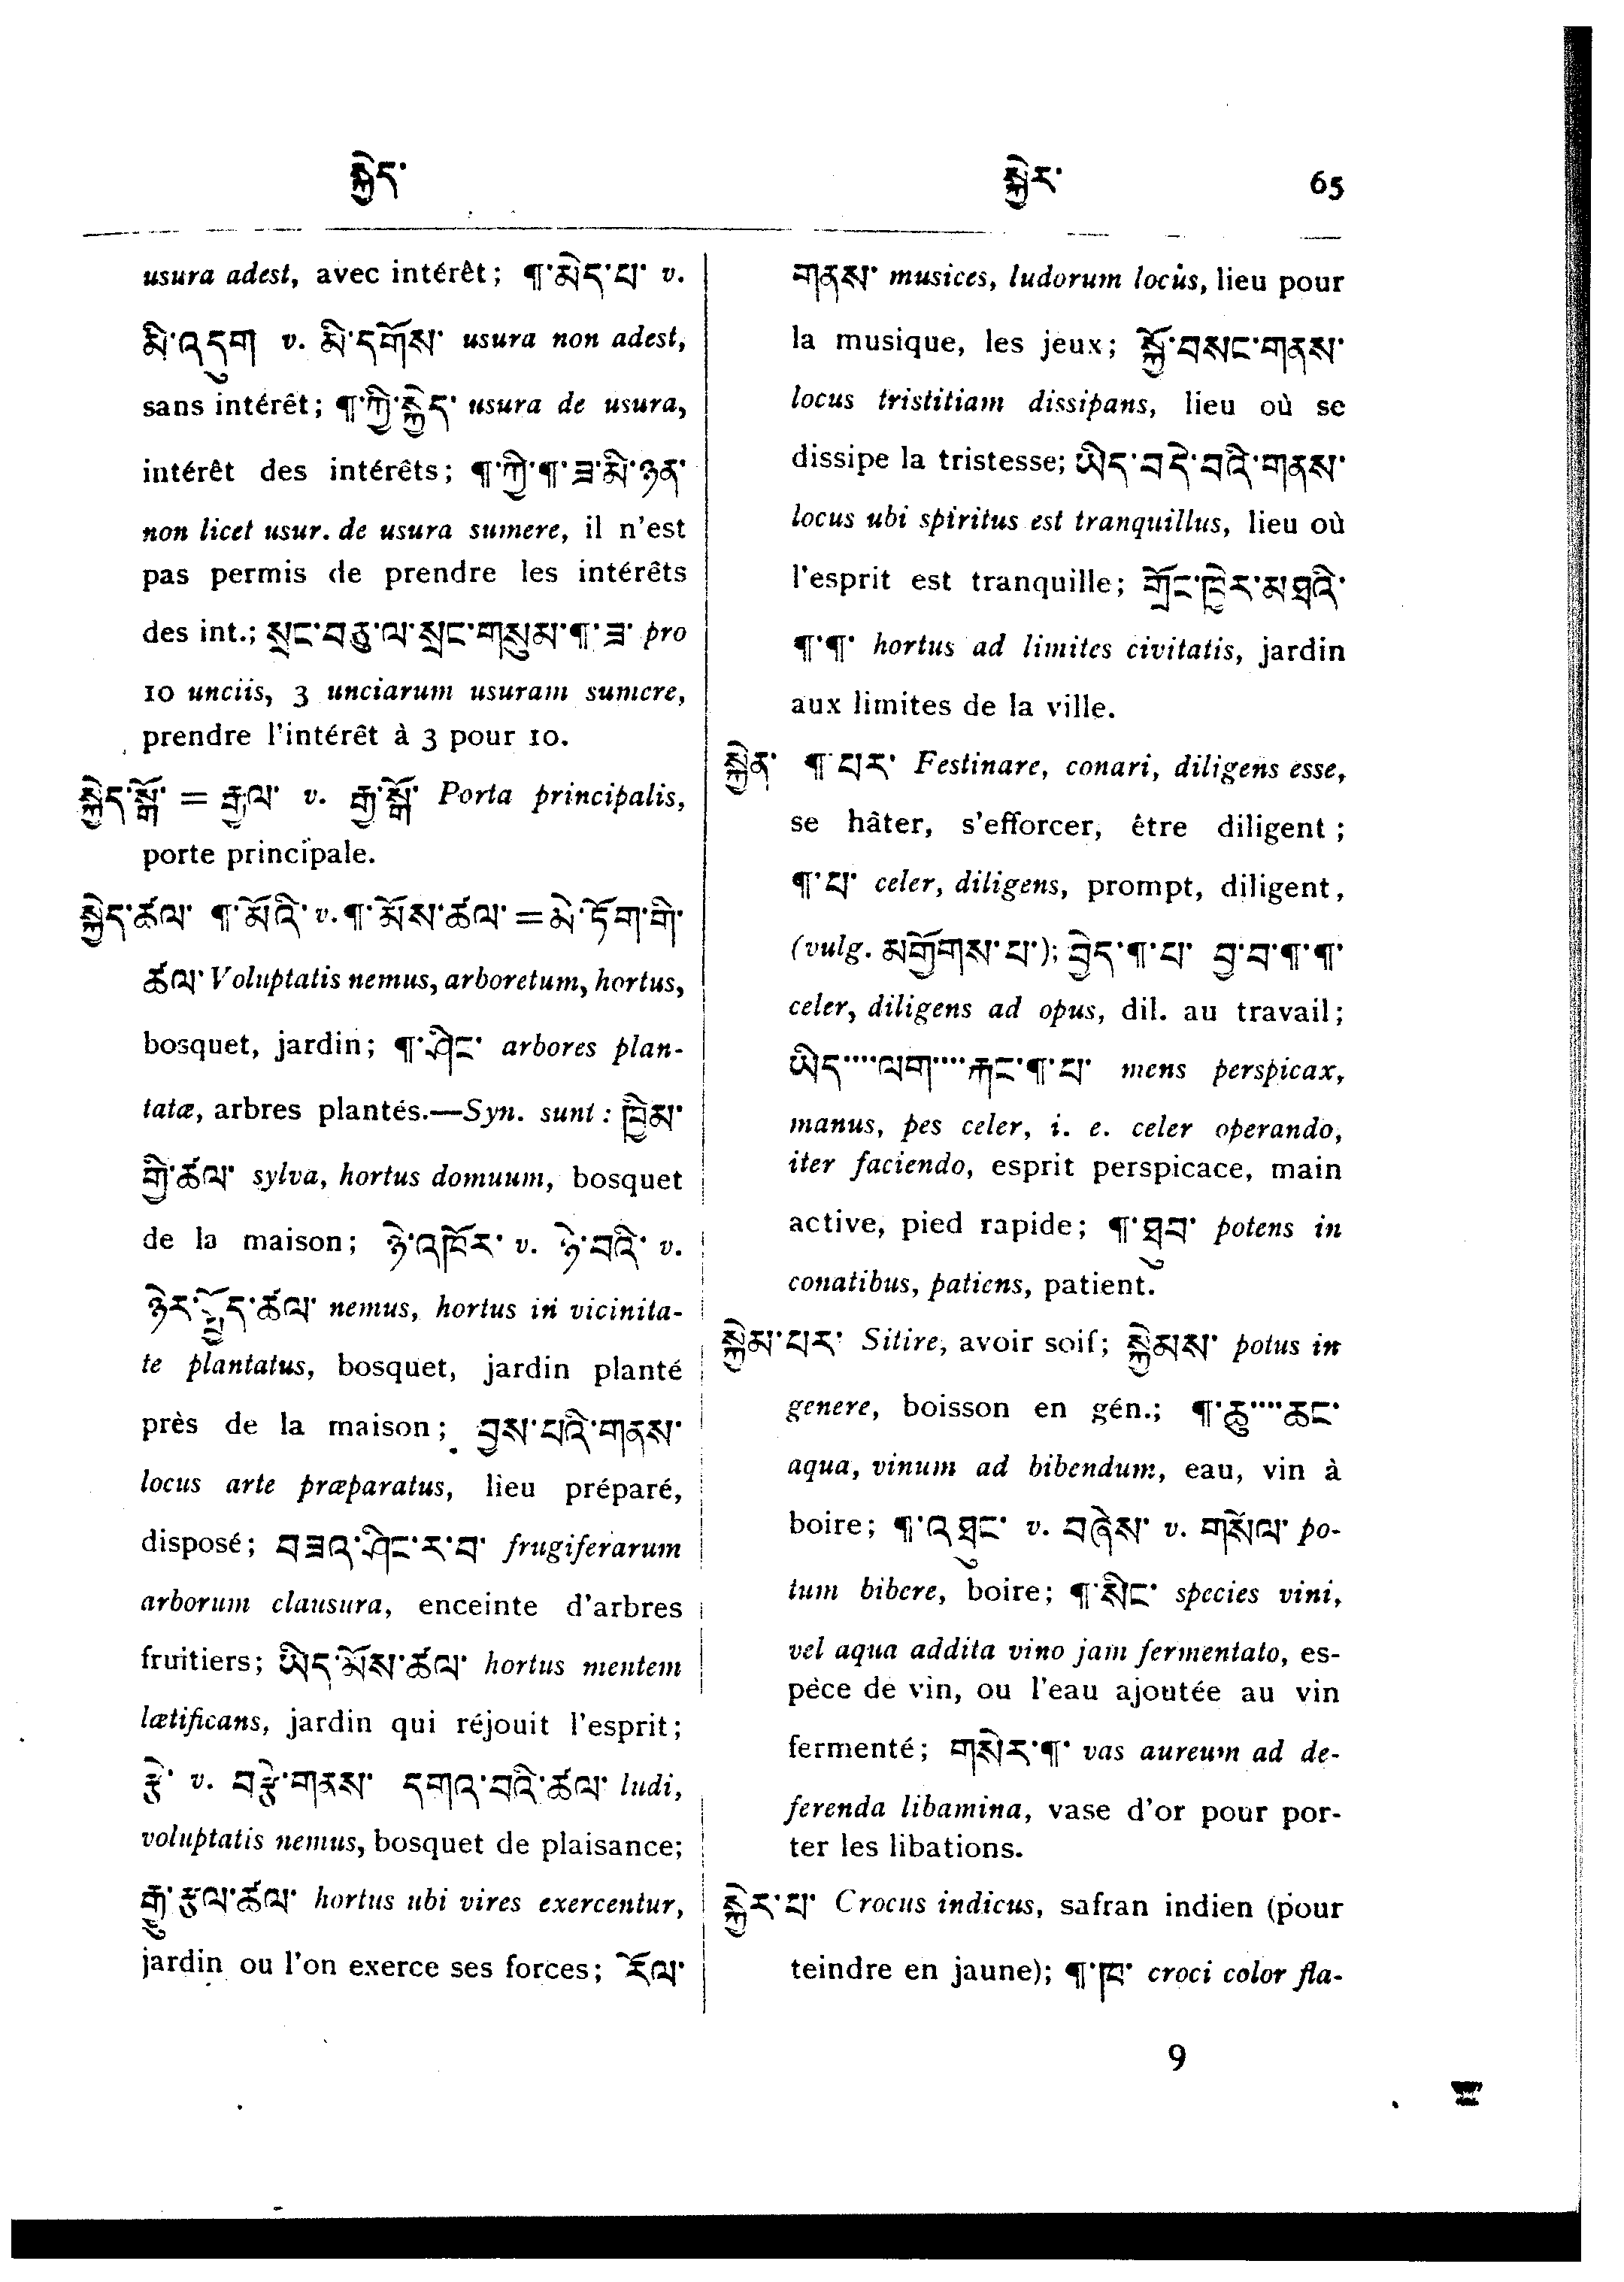 སྐྱེད་ སྐྱེར་ 65
usura adest, avec intérêt; ¶་མེད་པ་ v.
མི་འདུག v. མི་དགོས་ usura non adest,
sans intérêt; ¶་ཀྱི་སྐྱེད་ usura de usura,
intérêt des intérêts; ¶་ཀྱི་¶་ཟ་མི་ཉན་
non licet usur. de usura sumere, il n'est
pas permis de prendre les intérêts
des int.; སྲང་བཅུ་ལ་སྲང་གསུམ་¶་ཟ་ pro
10 unciis, 3 unciarum usuram sumere,
prendre l'intérêt à 3 pour 10.
སྐྱེད་སྒོ་ = རྒྱལ་ v. རྒྱ་སྒོ་ Porta principalis,
porte principale.
སྐྱེད་ཚལ་ ¶་མོའི་ v. ¶་མོས་ཚལ་ = མེ་ཏོག་གི་
ཚལ་ Voluptatis nemus, arboretum, hortus,
bosquet, jardin; ¶་ཤིང་ arbores plan-
tatæ, arbres plantés.—Syn. sunt: ཁྱིམ་
གྱི་ཚལ་ sylva, hortus domuum, bosquet
de la maison; ཉེ་འཁོར་ v. ཉེ་བའི་ v.
ཉེར་སྤྱོད་ཚལ་ nemus, hortus in vicinita-
te plantatus, bosquet, jardin planté
près de la maison; བྱས་པའི་གནས་
locus arte præparatus, lieu préparé,
disposé; བཟའ་ཤིང་ར་བ་ frugiferarum
arborum clausura, enceinte d'arbres
fruitiers; ཡིད་མོས་ཚལ་ hortus mentem
lætificans, jardin qui réjouit l'esprit;
རྩེ་ v. བརྩེ་གནས་ དགའ་བའི་ཚལ་ ludi,
voluptatis nemus, bosquet de plaisance;
རྒྱུ་རྩལ་ཚལ་ hortus ubi vires exercentur,
jardin ou l'on exerce ses forces; རོལ་
གནས་ musices, ludorum locus, lieu pour
la musique, les jeux; སྐྱོ་བསང་གནས་
locus tristitiam dissipans, lieu où se
dissipe la tristesse; ཡིད་བདེ་བའི་གནས་
locus ubi spiritus est tranquillus, lieu où
l'esprit est tranquille; གྲོང་ཁྱེར་མཐའི་
¶་¶་ hortus ad limites civitatis, jardin
aux limites de la ville.
སྐྱེན་ ¶་པར་ Festinare, conari, diligens esse,
se hâter, s'efforcer, être diligent;
¶་པ་ celer, diligens, prompt, diligent,
(vulg. མགྱོགས་པ་); བྱེད་¶་པ་ བྱ་བ་¶་¶་
celer, diligens ad opus, dil. au travail;
ཡིད་····ལག་····རྐང་¶་པ་ mens perspicax,
manus, pes celer, i. e. celer operando,
iter faciendo, esprit perspicace, main
active, pied rapide; ¶་ཐུབ་ potens in
conatibus, patiens, patient.
སྐྱེམ་པར་ Sitire, avoir soif; སྐྱེམས་ potus in
genere, boisson en gén.; ¶་ཆུ་····ཆང་
aqua, vinum ad bibendum, eau, vin à
boire; ¶་འཐུང་ v. བཞེས་ v. གསོལ་ po-
tum bibere, boire; ¶་སིང་ species vini,
vel aqua addita vino jam fermentato, es-
pèce de vin, ou l'eau ajoutée au vin
fermenté; གསེར་¶་ vas aureum ad de-
ferenda libamina, vase d'or pour por-
ter les libations.
སྐྱེར་པ་ Crocus indicus, safran indien (pour
teindre en jaune); ¶་ཁ་ croci color fla-
9